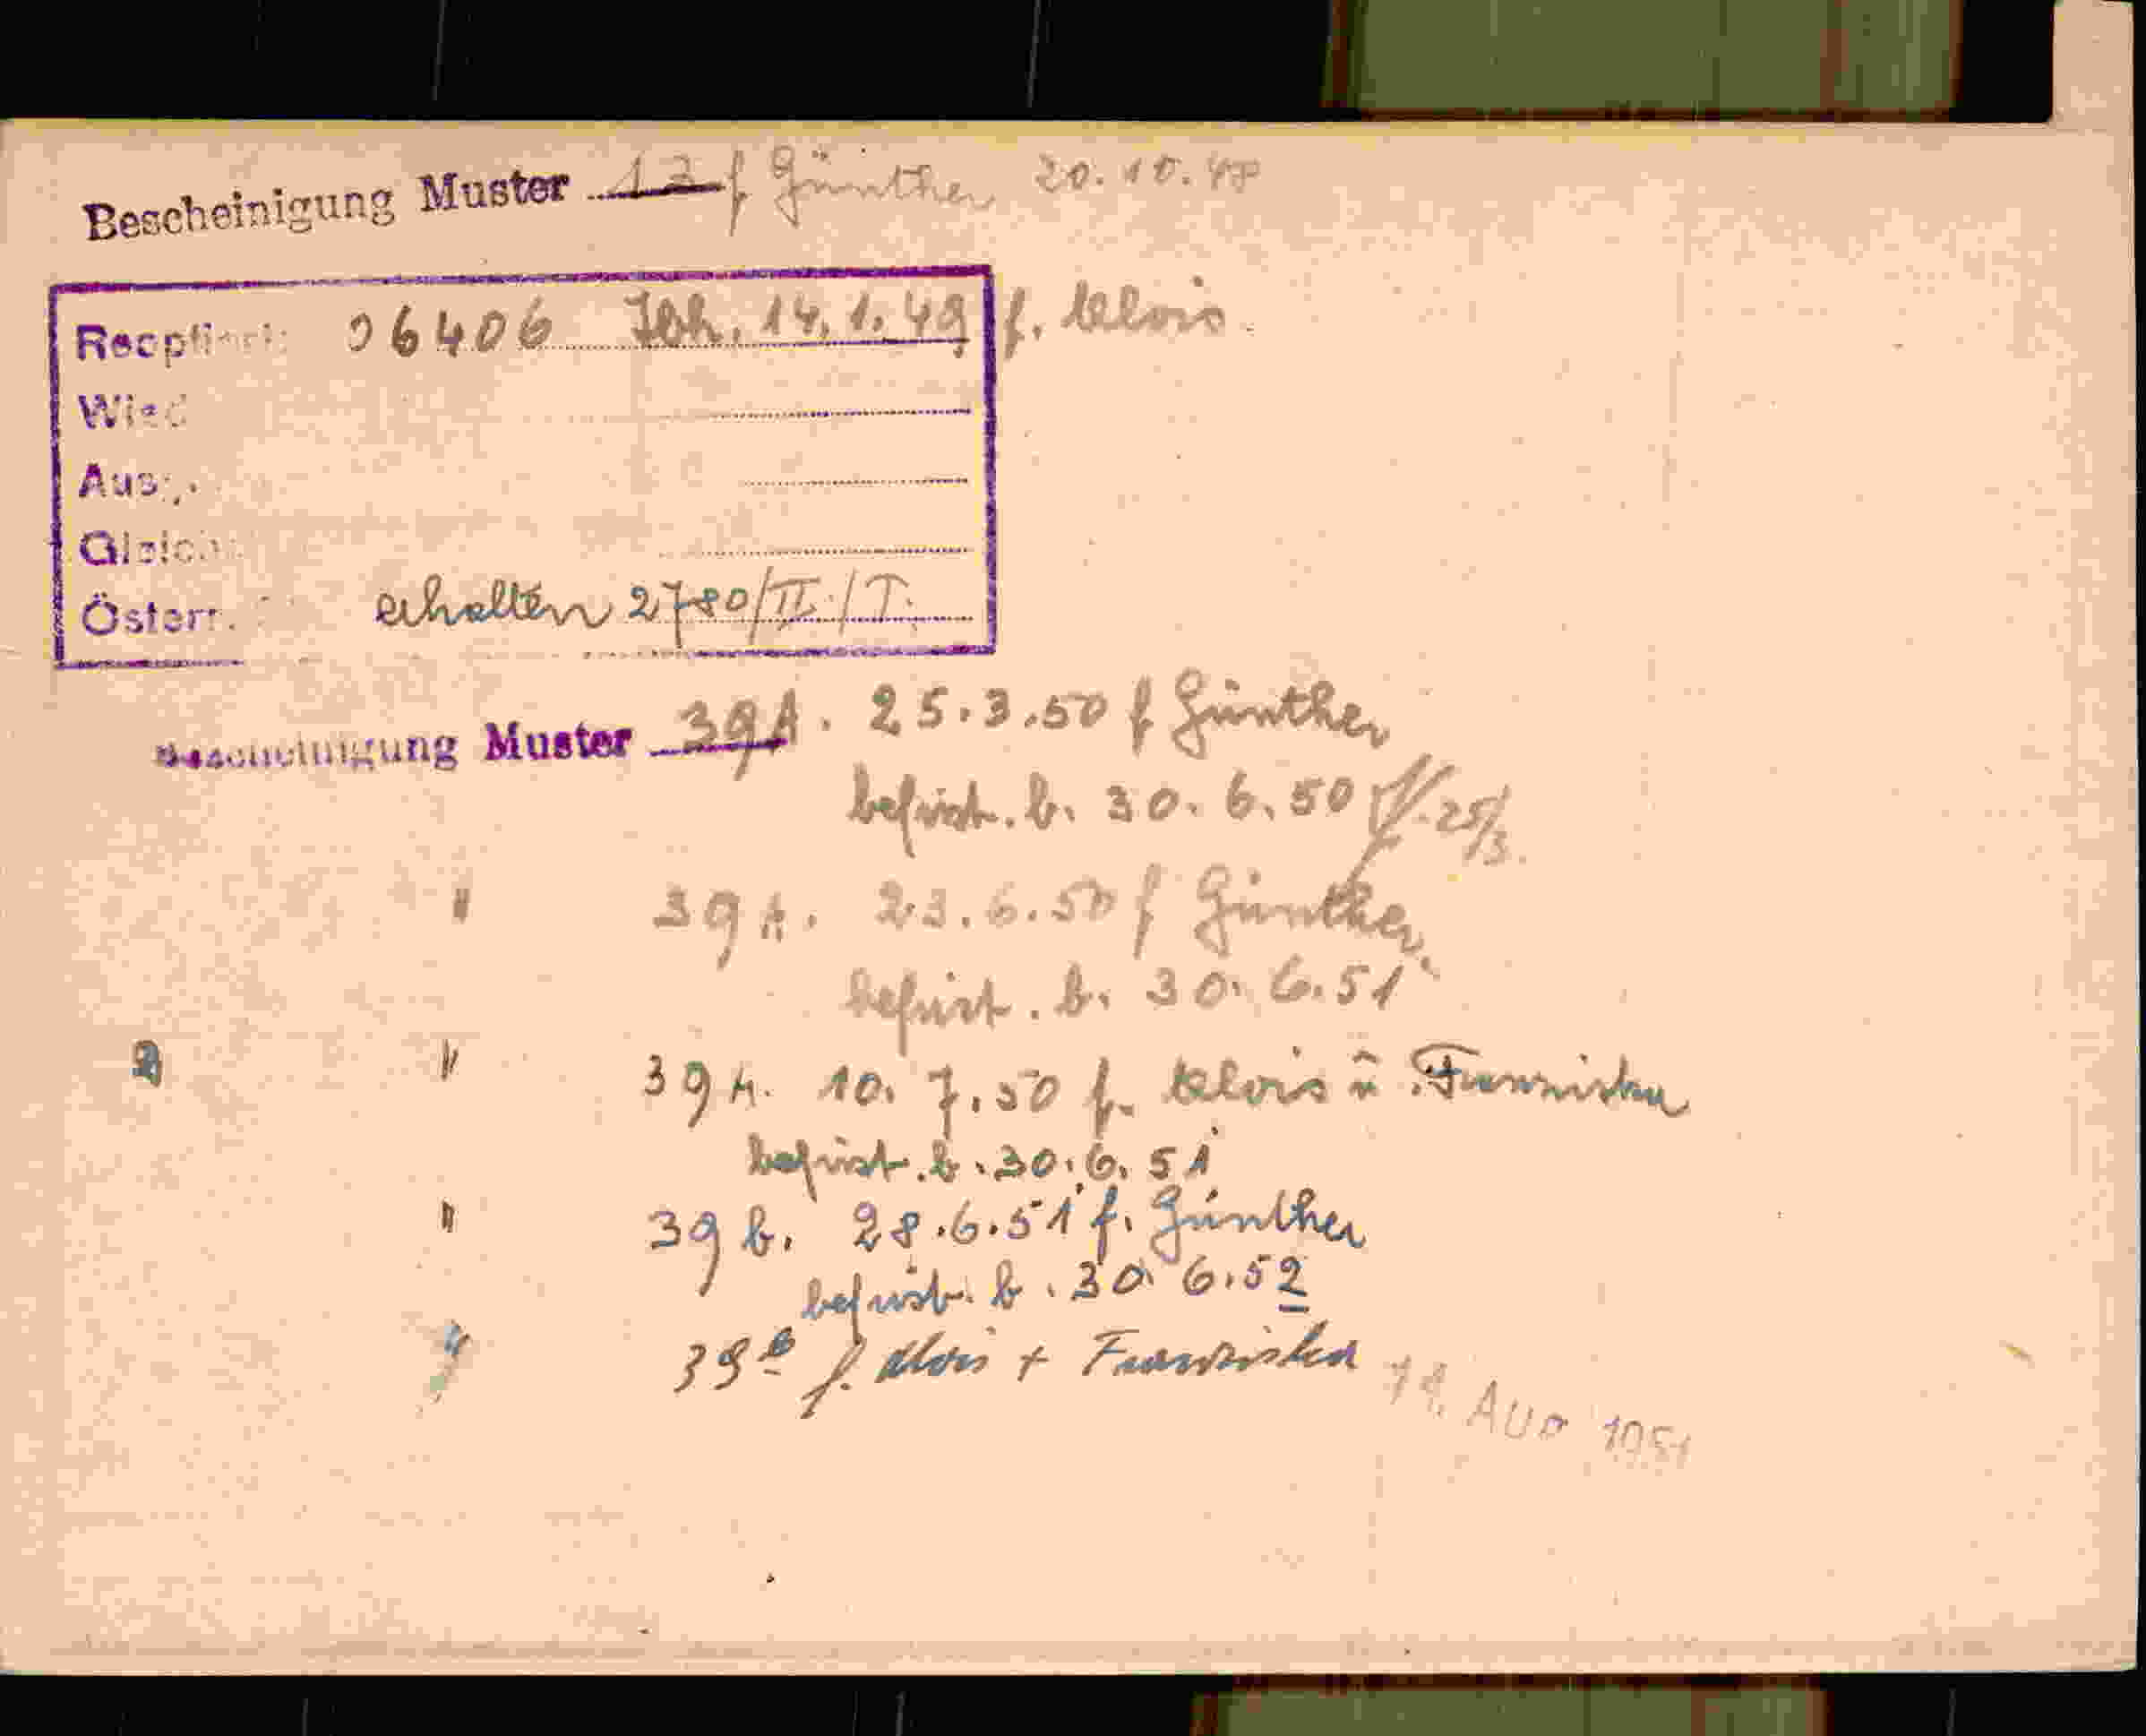 Bescheinigung Muster 13 f Günther 20.10.48
06406 14.1.49 f. Alois
Wied
Ausg.
Gleich
Österr. erhalten 2780/II./T.
Bescheinigung Muster 39A. 25.3.50 f Günther
befrist. b. 30.6.50 25/3.
" 39A. 23.6.50 f Günther
befrist. b. 30.6.51
" 39A. 10.7.50 f. Alois u Franziska
befrist. b. 30.6.51
" 39b. 28.6.51 f. Günther
befrist. b. 30.6.52
" 39b f. Alois + Franziska 14. AUG 1951